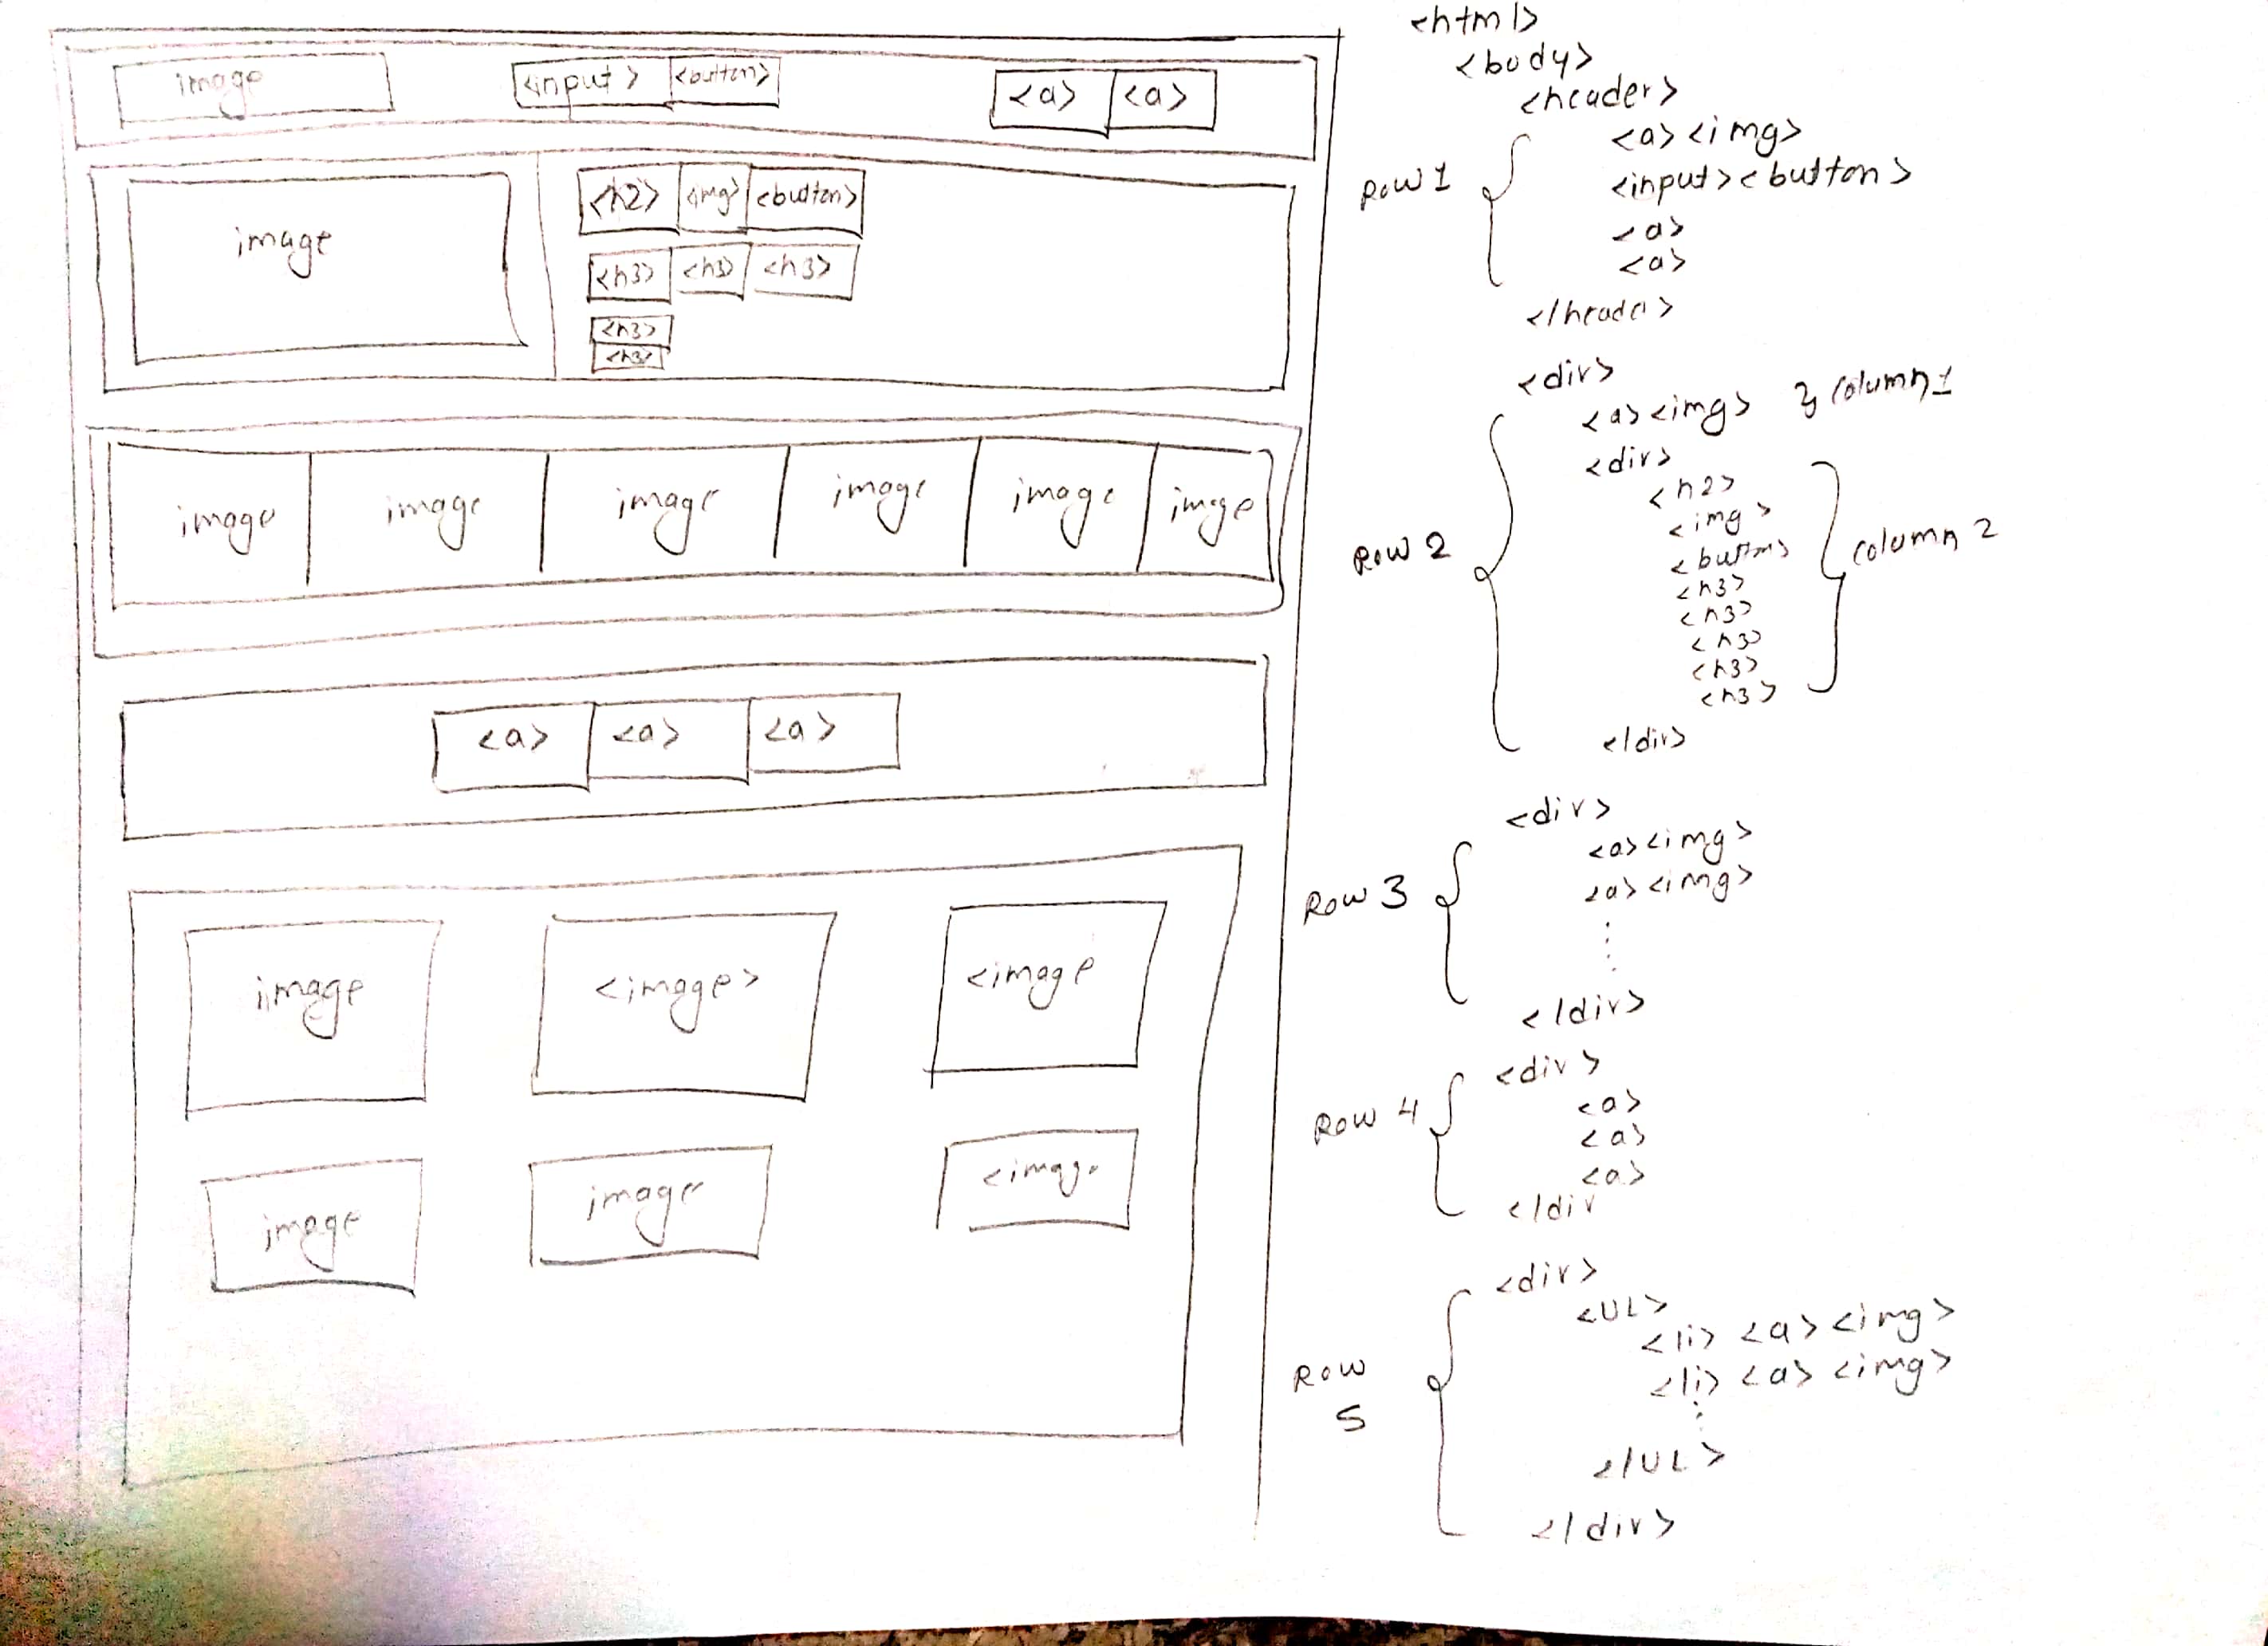 image <input> <button> <a> <a>
image
<h2> <img> <button>
<h3> <h3> <h3>
<h3>
<h3>
image image image image image image
<a> <a> <a>
image <image> <image
image image <image
<html>
<body>
<header>
<a> <img>
ROW 1 <input> <button>
<a>
<a>
</header>
<div>
<a> <img> } column 1
<div>
<h2>
<img>
<button>
ROW 2 column 2
<h3>
<h3>
<h3>
<h3>
<h3>
</div>
<div>
<a> <img>
ROW 3 <a> <img>
</div>
<div>
ROW 4 <a>
<a>
<a>
</div
<div>
<UL>
<li> <a> <img>
ROW <li> <a> <img>
5
</UL>
</div>